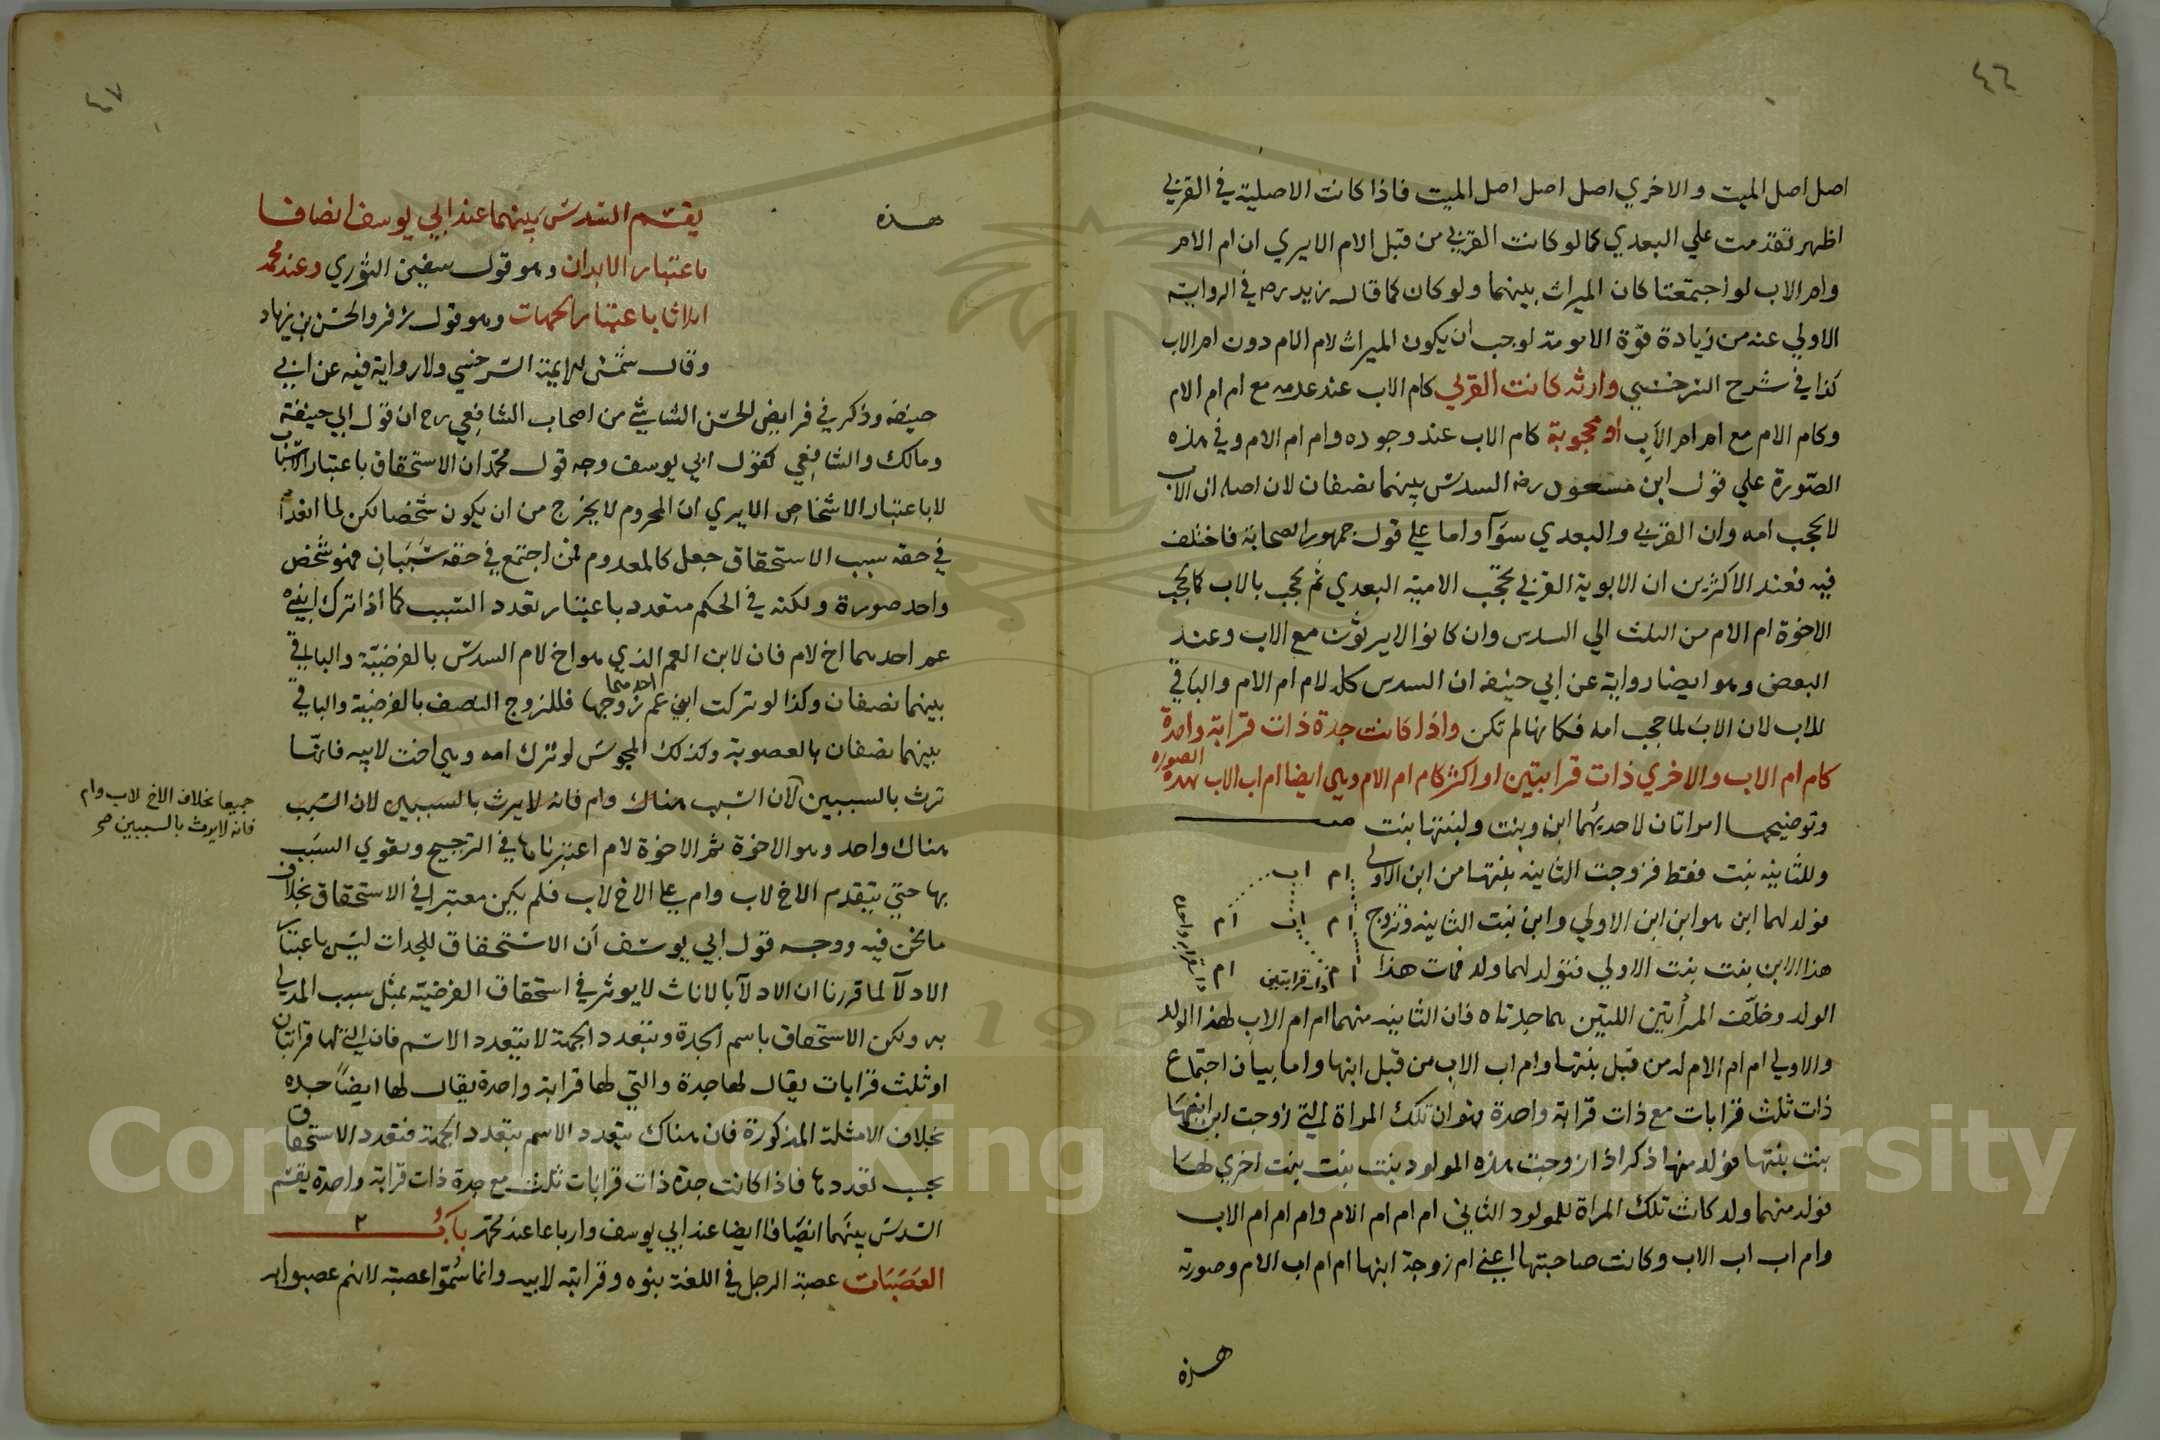 ٤٦
اصل اصل الميت والاخري اصل اصل اصل الميت فاذا كانت الاصلية في القربي
اظهر تقدمت علي البعدي كما لو كانت القربي من قبل الام الا يري ان ام الام
وام الاب لو اجتمعتا كان الميراث بينهما ولو كان كما قال زيد رضه في الرواية
الاولي عنه من زيادة قوة الامومة لوجب ان يكون الميراث لام الام دون ام الاب
كذا في شرح السرخسي وارثه كانت القربي كام الاب عند عدمه مع ام ام الام
وكام الام مع ام ام الاب او محجوبة كام الاب عند وجوده وام ام الام وفي هذه
الصورة علي قول ابن مسعود رضه السدس بينهما نصفان لان اصله ان الاب
لا يحجب امه وان القربي والبعدي سوآ واما علي قول جمهور الصحابة فاختلف
فيه فعند الاكثرين ان الابوية القربي تحجب الامية البعدي ثم تحجب بالاب كما يحجب
الاخوة ام الام من الثلث الي السدس وان كانوا لا يرثون مع الاب وعند
البعض وهو ايضا رواية عن ابي حنيفه ان السدس كله لام ام الام والباقي
للاب لان الاب لما حجب امه فكانها لم تكن واذا كانت جدة ذات قرابة واحدة
كام ام الاب والاخري ذات قرابتين او اكثر كام ام الام وهي ايضا ام اب الاب بهذه
الصوره
وتوضيحها امراتان لاحديهما ابن وبنت ولبنتها بنت
وللثانيه بنت فقط فزوجت الثانيه بنتها من ابن الاولي
ام اب
فولد لهما ابن هو ابن ابن الاولي وابن بنت الثانيه وتزوج
ام اب ام
هذا الابن بنت بنت الاولي فتولد لهما ولد فمات هذا
ام ذات قرابتين ام
ذات قرابه واحده
الولد وخلفت المرأتين اللتين هما جدتاه فان الثانيه منهما ام ام الاب لهذا الولد
والاولي ام ام الام له من قبل بنتها وام اب الاب من قبل ابنها واما بيان اجتماع
ذات ثلث قرابات مع ذات قرابة واحدة فهو ان تلك المراة التي زوجت ابن ابنها
بنت بنتها فولد منها ذكر اذا زوجت هذه المولود بنت بنت بنت اخري لها
فولد منهما ولد كانت تلك المراة للمولود الثاني ام ام ام الام وام ام ام الاب
وام اب اب الاب وكانت صاحبتها اعني ام زوجة ابنها ام ام اب الام وصورته
هذه
٤٧
هذه
يقسم السدس بينهما عند ابي يوسف انصافا
باعتبار الابدان وهو قول سفين الثوري وعند محمد
اثلاثا باعتبار الجهات وهو قول زفر والحسن بن زياد
وقال شمس الايمة السرخسي ولا رواية فيه عن ابي
حنيفه وذكر في فرايض الحسن الشاشي من اصحاب الشافعي رح ان قول ابي حنيفة
ومالك والشافعي كقول ابي يوسف وجه قول محمد ان الاستحقاق باعتبار الاسباب
لا باعتبار الاشخاص الا يري ان المحروم لا يخرج من ان يكون شخصا لكن لما انعدم
في حقه سبب الاستحقاق جعل كالمعدوم فمن اجتمع في حقه سببان فهو شخص
واحد صورة ولكنه في الحكم متعدد باعتبار تعدد السبب كما اذا ترك ابني
عم احدهما اخ لام فان لابن العم الذي هو اخ لام السدس بالفرضية والباقي
بينهما نصفان وكذا لو تركت ابني عم احدهما زوجها فللزوج النصف بالفرضية والباقي
بينهما نصفان بالعصوبة وكذلك المجوسي لو ترك امه وهي اخت لابيه فانها
ترث بالسببين لان السبب هناك وام فانه لا يرث بالسببين لان السبب
جميعا بخلاف الاخ لاب وام
فانه لا يرث بالسببين صح
هناك واحد وهو الاخوة ثم الاخوة لام اعتبرناها في الترجيح وتقوي السبب
بها حتي يتقدم الاخ لاب وام علي الاخ لاب فلم يكن معتبرا في الاستحقاق بخلاف
ما نحن فيه ووجه قول ابي يوسف ان الاستحقاق للجدات ليس باعتبار
الادلآ لما قررنا ان الادلآ بالاناث لا يوثر في استحقاق الفرضية بمثل سبب المدلي
به ولكن الاستحقاق باسم الجدة وبتعدد الجهة لا يتعدد الاسم فان التي لها قرابتان
او ثلث قرابات يقال لها جدة والتي لها قرابة واحدة يقال لها ايضا جده
بخلاف الامثلة المذكورة فان هناك يتعدد الاسم بتعدد الجهة فتعدد الاستحقاق
بحسب تعددها فاذا كانت جدة ذات قرابات ثلث مع جدة ذات قرابة واحدة يقسم
السدس بينهما انصافا ايضا عند ابي يوسف وارباعا عند محمد باب
العصبات عصبة الرجل في اللغة بنوه وقرابته لابيه وانما سموا عصبة لانهم عصبوا به
Copyright © King Saud University
195